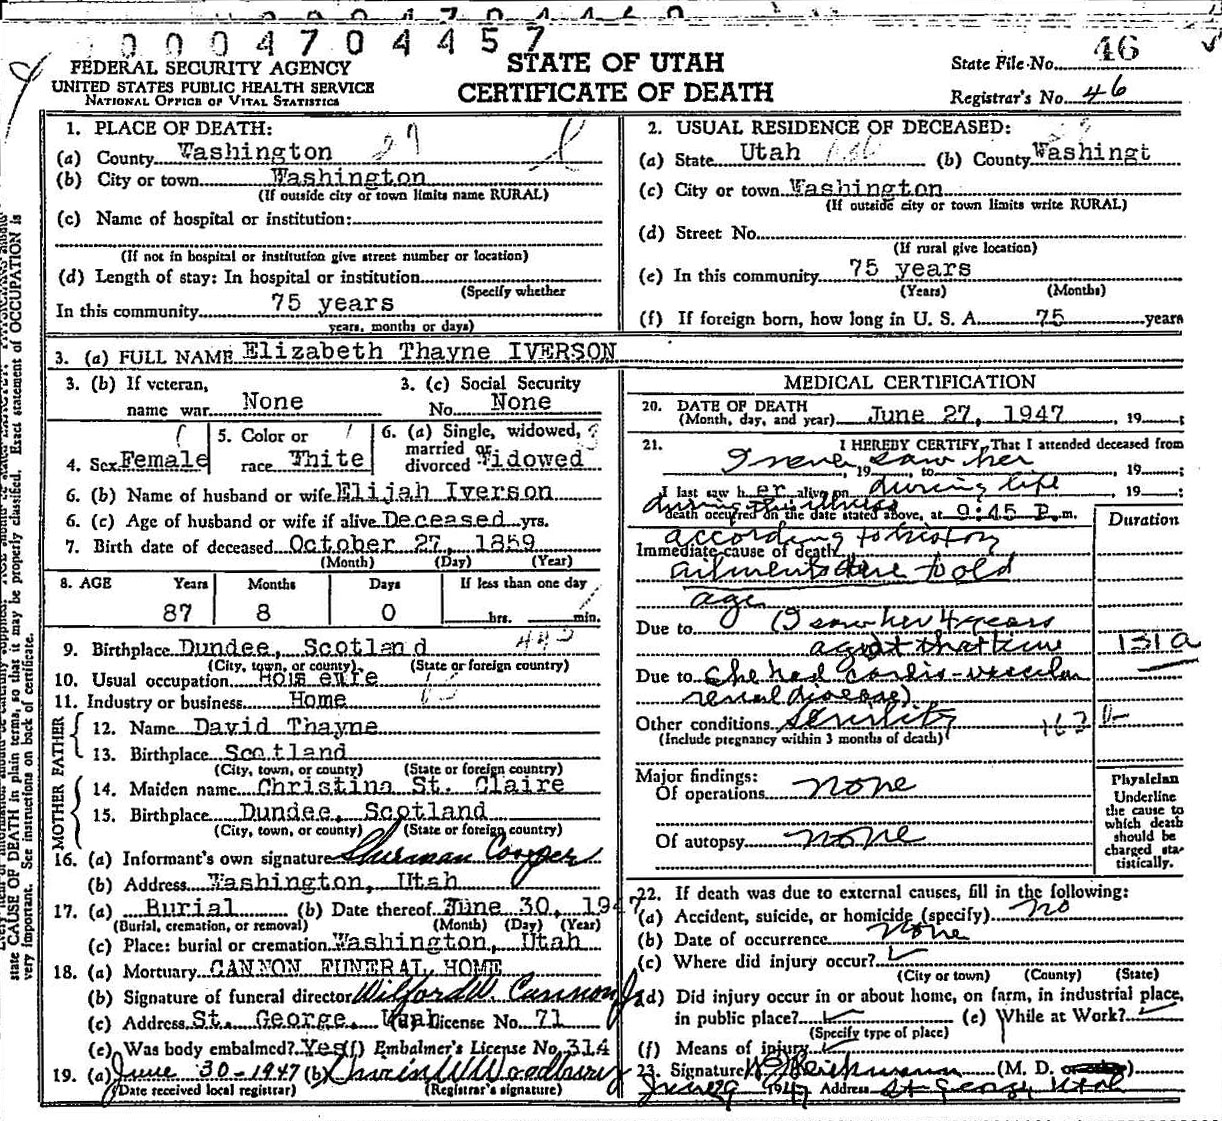 0 0 0 4 7 0 4 4 5 7
FEDERAL SECURITY AGENCY
UNITED STATES PUBLIC HEALTH SERVICE
NATIONAL OFFICE OF VITAL STATISTICS
STATE OF UTAH
CERTIFICATE OF DEATH
State File No. 46
Registrar's No. 46
1. PLACE OF DEATH:
(a) County Washington 27
(b) City or town Washington
(If outside city or town limits name RURAL)
(c) Name of hospital or institution:
(If not in hospital or institution give street number or location)
(d) Length of stay: In hospital or institution
(Specify whether
In this community 75 years
years, months or days)
2. USUAL RESIDENCE OF DECEASED:
(a) State Utah (b) County Washingt
(c) City or town Washington
(If outside city or town limits write RURAL)
(d) Street No.
(If rural give location)
(e) In this community 75 years
(Years) (Months)
(f) If foreign born, how long in U. S. A. 75 years
3. (a) FULL NAME Elizabeth Thayne IVERSON
3. (b) If veteran, name war None
3. (c) Social Security No. None
4. Sex Female
5. Color or race White
6. (a) Single, widowed, married or divorced Widowed
6. (b) Name of husband or wife Elijah Iverson
6. (c) Age of husband or wife if alive Deceased yrs.
7. Birth date of deceased October 27, 1859
(Month) (Day) (Year)
8. AGE Years Months Days If less than one day
87 8 0 hrs. min.
9. Birthplace Dundee, Scotland
(City, town, or county) (State or foreign country)
10. Usual occupation
11. Industry or business Home
FATHER
12. Name David Thayne
13. Birthplace Scotland
(City, town, or county) (State or foreign country)
MOTHER
14. Maiden name Christina St. Claire
15. Birthplace Dundee, Scotland
(City, town, or county) (State or foreign country)
16. (a) Informant's own signature Sherman Cooper
(b) Address Washington, Utah
17. (a) Burial (b) Date thereof June 30, 1947
(Burial, cremation, or removal) (Month) (Day) (Year)
(c) Place: burial or cremation Washington, Utah
18. (a) Mortuary CANNON FUNERAL HOME
(b) Signature of funeral director Wilford W. Cannon Jr
(c) Address St. George, Utah (d) License No. 71
(e) Was body embalmed? Yes (f) Embalmer's License No. 314
19. (a) June 30-1947 (b) Woodbury
(Date received local registrar) (Registrar's signature)
MEDICAL CERTIFICATION
20. DATE OF DEATH
(Month, day, and year) June 27, 1947 , 19 ;
21. I HEREBY CERTIFY, That I attended deceased from
I never saw her , 19 , to , 19 ;
I last saw her alive on during life , 19 ;
during this illness
death occurred on the date stated above, at 9:45 P. m.
Duration
according to history
Immediate cause of death
ailments due to old
age
Due to (I saw her 4 years
ago at that time 131a
Due to she had cardio-vascular
renal disease)
Other conditions Senility 162 b
(Include pregnancy within 3 months of death)
Major findings:
Of operations none
Of autopsy none
Physician
Underline
the cause to
which death
should be
charged sta-
tistically.
22. If death was due to external causes, fill in the following:
(a) Accident, suicide, or homicide (specify) no
(b) Date of occurrence none
(c) Where did injury occur?
(City or town) (County) (State)
(d) Did injury occur in or about home, on farm, in industrial place,
in public place? (e) While at Work?
(Specify type of place)
(f) Means of injury
23. Signature (M. D. )
June 29 1947 Address St George Utah
state CAUSE OF DEATH in plain terms, so that it may be properly classified. Exact statement of OCCUPATION is
very important. See instructions on back of certificate.